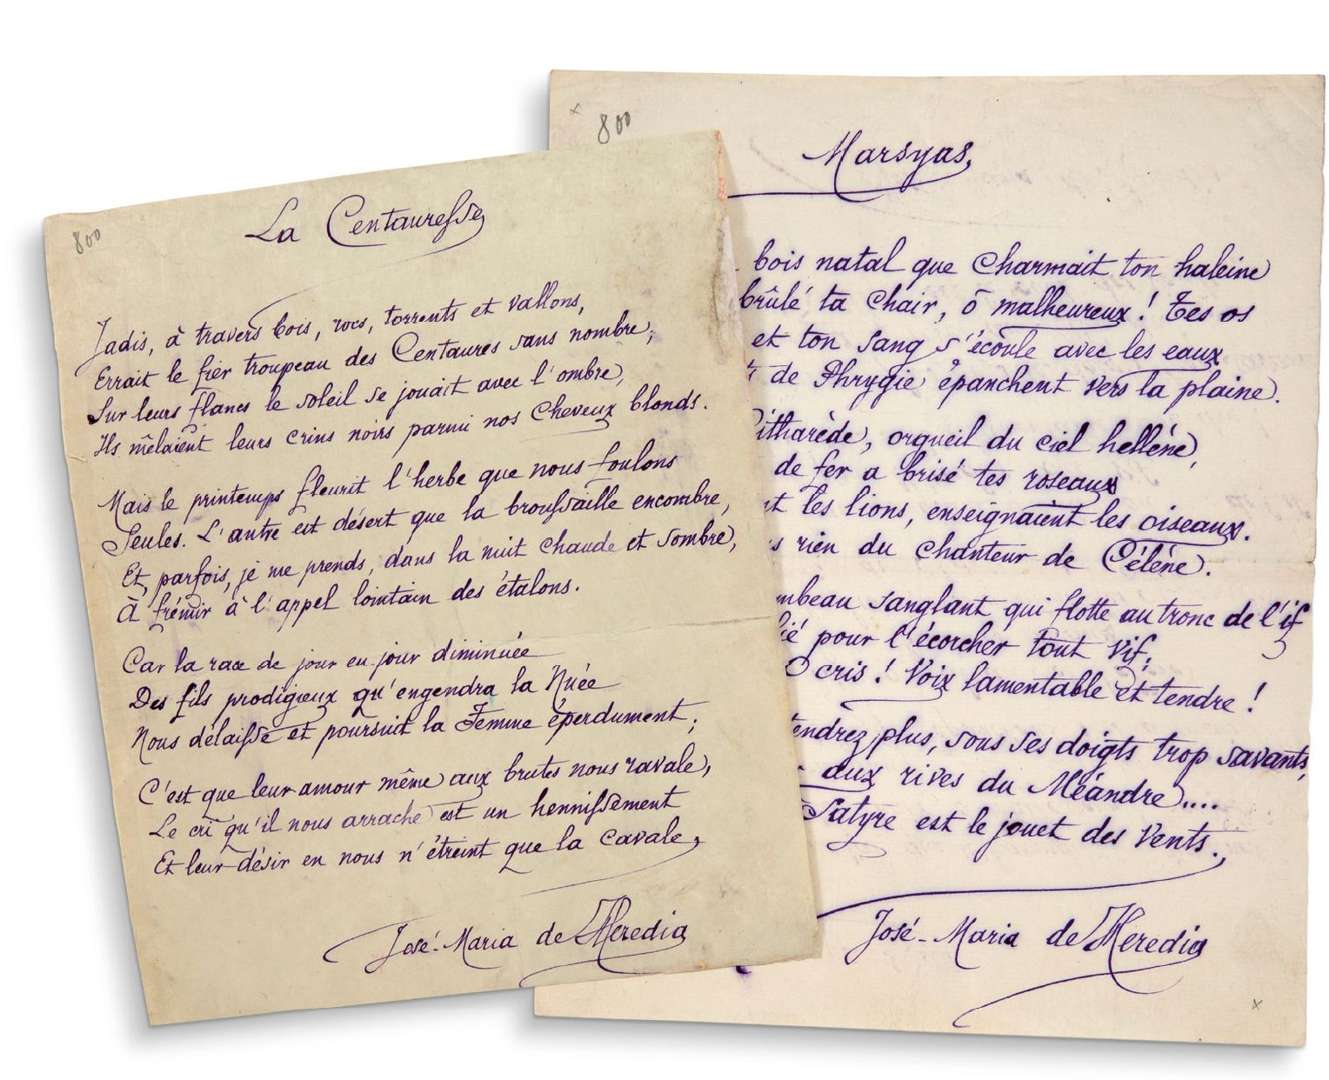 800
La Centauresse
Jadis, à travers bois, rocs, torrents et vallons,
Errait le fier troupeau des Centaures sans nombre,
Sur leurs flancs le soleil se jouait avec l'ombre,
Ils mêlaient leurs crins noirs parmi nos cheveux blonds.
Mais le printemps fleurit l'herbe que nous foulons
Seules. L'antre est désert que la broussaille encombre,
Et, parfois, je me prends, dans la nuit chaude et sombre,
À frémir à l'appel lointain des étalons.
Car la race de jour en jour diminuée
Des fils prodigieux qu'engendra la Nuée
Nous délaisse et poursuit la Femme éperdument;
C'est que leur amour même aux brutes nous ravale,
Le cri qu'il nous arrache est un hennissement
Et leur désir en nous n'étreint que la cavale,
José-Maria de Heredia
x 800
Marsyas
bois natal que charmait ton haleine
brûlé ta chair, ô malheureux! Tes os
et ton sang s'écoule avec les eaux
de Phrygie épanchent vers la plaine.
Citharède, orgueil du ciel hellène,
de fer a brisé tes roseaux
les lions, enseignaient les oiseaux.
rien du chanteur de Célène.
sanglant qui flotte au tronc de l'if
pour l'écorcher tout vif;
Ô cris! Voix lamentable et tendre!
plus, sous ses doigts trop savants,
aux rives du Méandre....
Satyre est le jouet des vents.
José-Maria de Heredia
x